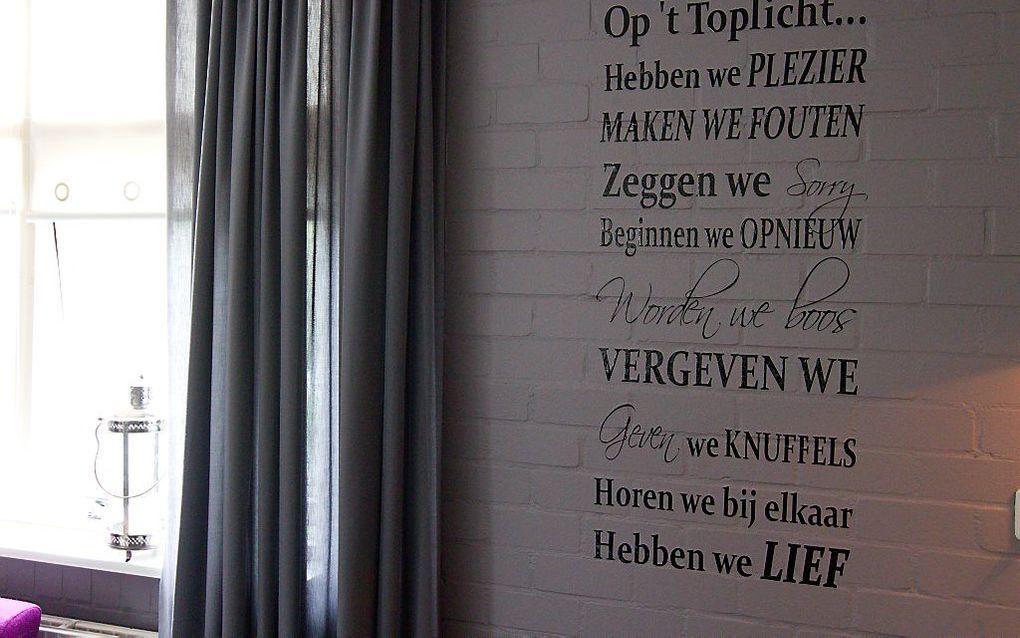 Op 't Toplicht...
Hebben we PLEZIER
MAKEN WE FOUTEN
Zeggen we Sorry
Beginnen we OPNIEUW
Worden we boos
VERGEVEN WE
Geven we KNUFFELS
Horen we bij elkaar
Hebben we LIEF